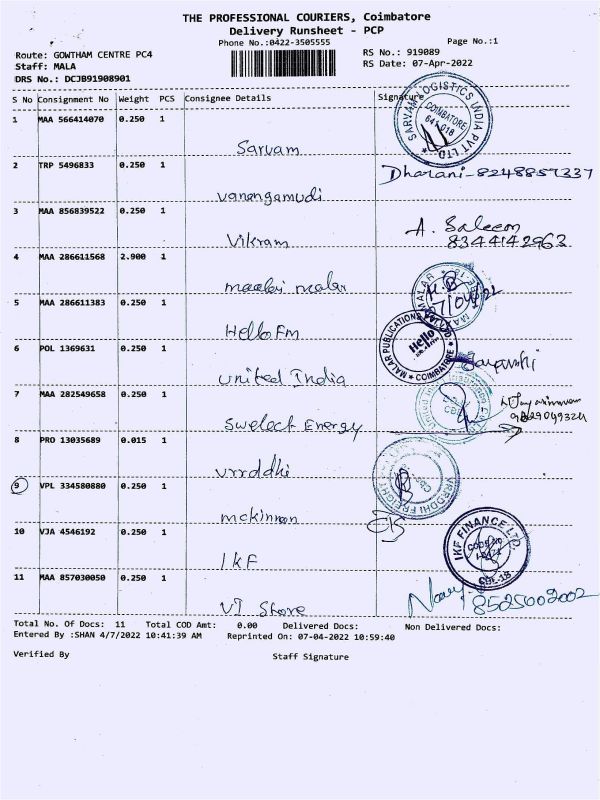 THE PROFESSIONAL COURIERS, Coimbatore
Delivery Runsheet - PCP
Phone No.:0422-3505555
Page No.:1
Route: GOWTHAM CENTRE PC4
RS No.: 919089
Staff: MALA
RS Date: 07-Apr-2022
DRS No.: DCJB91908901
S No Consignment No Weight PCS Consignee Details Signature
1 MAA 566414070 0.250 1
Sarvam
SARVAM LOGISTICS INDIA PVT LTD
COIMBATORE
641 018
2 TRP 5496833 0.250 1
vanangamudi
Dharani-8248857337
3 MAA 856839522 0.250 1
Vikram
A. Saleem
8344142963
4 MAA 286611568 2.900 1
maalai malar
7/04/22
5 MAA 286611383 0.250 1
Hello Fm
MALAR PUBLICATIONS
Hello
COIMBATORE
6 POL 1369631 0.250 1
united India
7 MAA 282549658 0.250 1
Swelect Energy
8 PRO 13035689 0.015 1
vrrddhi
VRRDDHI FREIGHT
9 VPL 334580880 0.250 1
mckinnon
10 VJA 4546192 0.250 1
IKF
IKF FINANCE LTD.
CBE-18
11 MAA 857030050 0.250 1
VI Store
8525002002
Total No. Of Docs: 11 Total COD Amt: 0.00 Delivered Docs: Non Delivered Docs:
Entered By :SHAN 4/7/2022 10:41:39 AM Reprinted On: 07-04-2022 10:59:40
Verified By Staff Signature